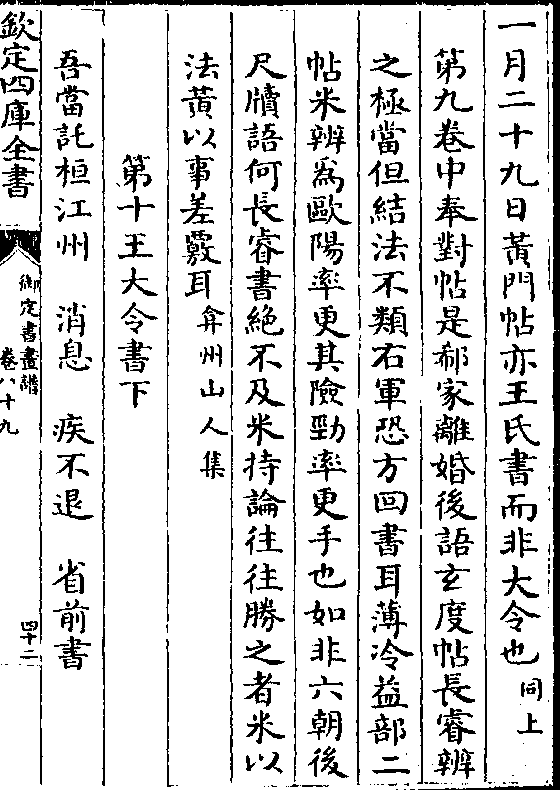 一月二十九日黃門帖亦王氏書而非大令也同上
第九卷中奉對帖是郗家離婚後語玄度帖長睿辨
之極當但結法不類右軍恐方回書耳薄冷益部二
帖米辨為歐陽率更其險勁率更手也如非六朝後
尺牘語何長睿書絶不及米持論往往勝之者米以
法黃以事差覈耳弇州山人集
第十王大令書下
吾當託桓江州 消息 疾不退 省前書
欽定四庫全書
御定書畫譜
卷八十九
四十二